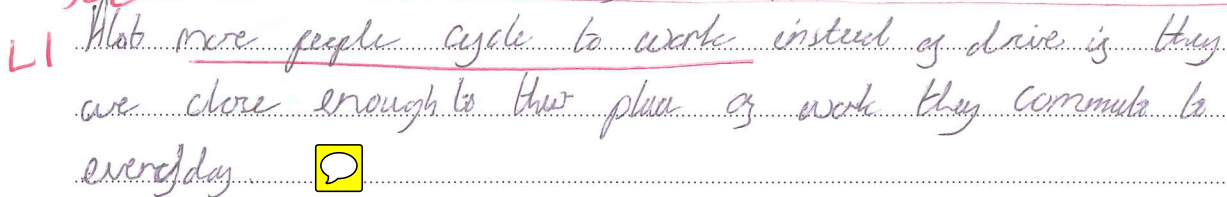 L1 Alot more people cycle to work instead of drive if they
are close enough to their place of work they commute to
everyday.